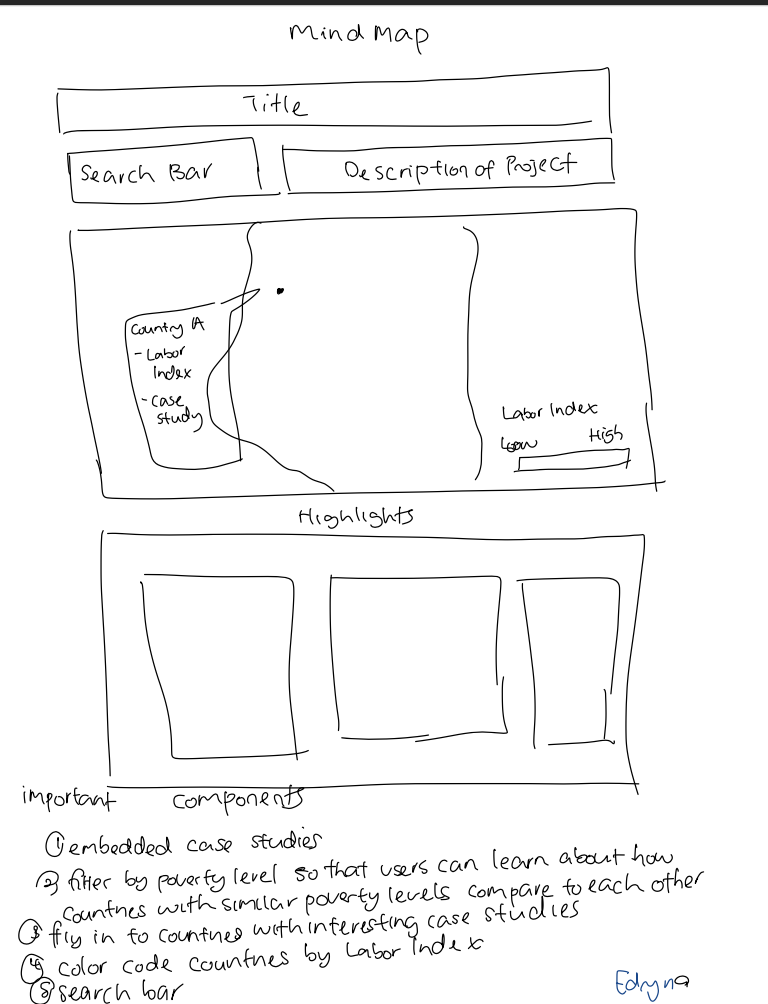 Mind Map
Title
Search Bar
Description of Project
Country A
- Labor
Index
- Case
study
Labor Index
Low High
Highlights
important components
① embedded case studies
② filter by poverty level so that users can learn about how
countries with similar poverty levels compare to each other
③ fly in to countries with interesting case studies
④ color code countries by Labor Index
⑤ search bar
Edryna